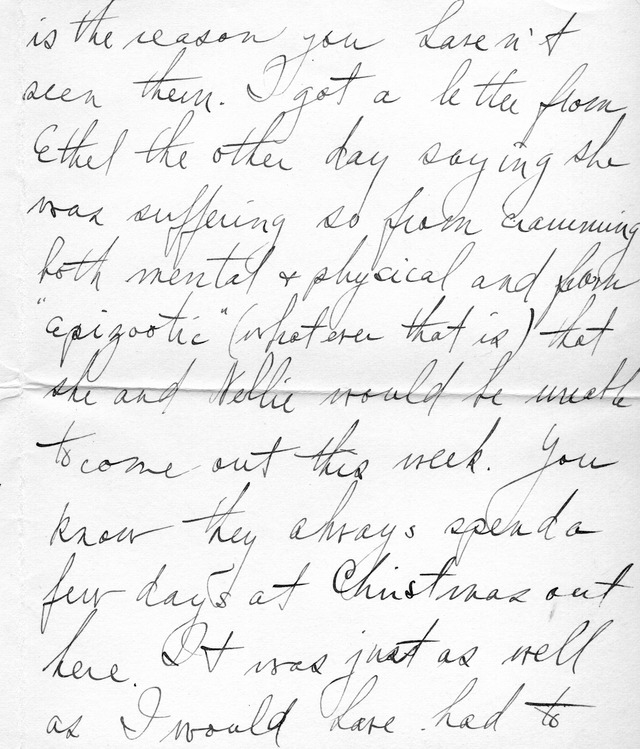 is the reason you haven't
seen them. I got a letter from
Ethel the other day saying she
was suffering so from cramming
both mental & physical and from
"epizootic" (whatever that is) that
she and Nellie would be unable
to come out this week. You
know they always spend a
few days at Christmas out
here. It was just as well
as I would have had to